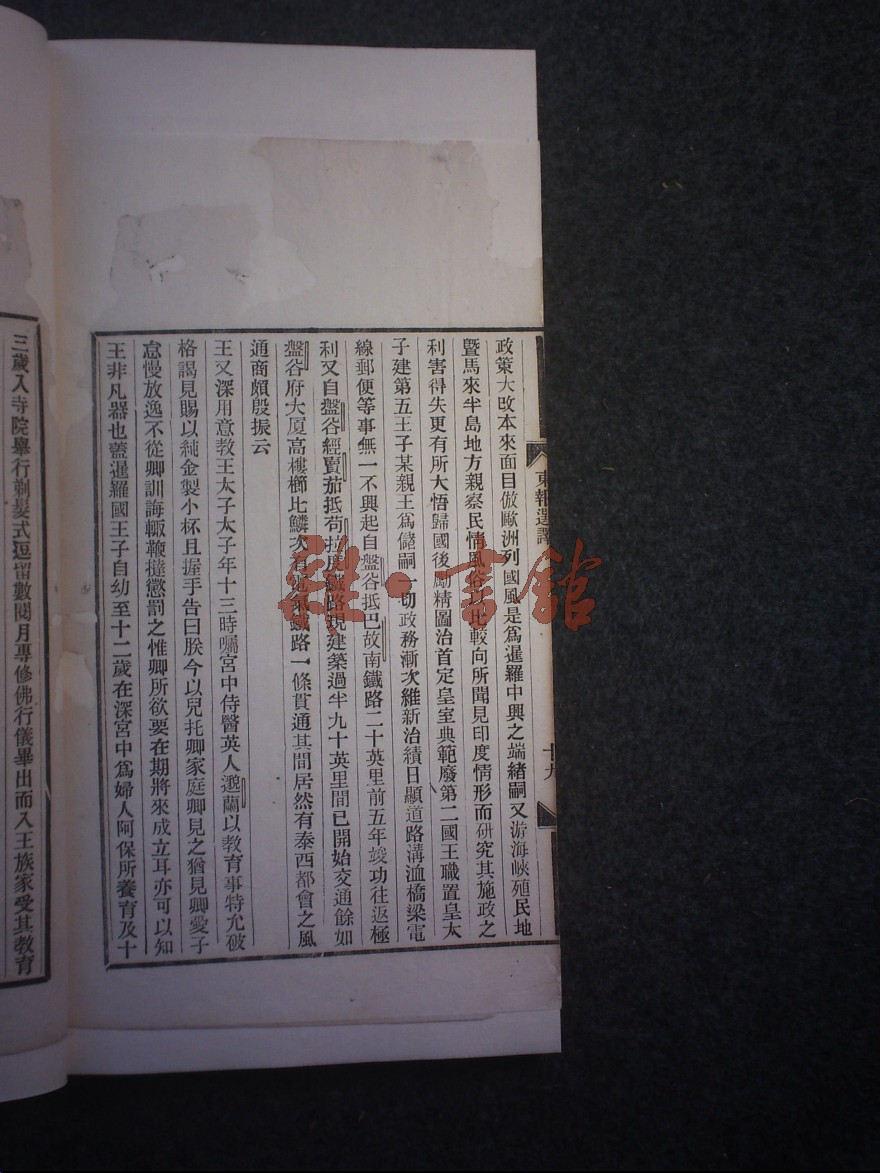 東報選譯
十九
政策大改本來面目倣歐洲列國風是爲暹羅中興之端緒嗣又游海峽殖民地
暨馬來半島地方親察民情風俗以比較向所聞見印度情形而研究其施政之
利害得失更有所大悟歸國後勵精圖治首定皇室典範廢第二國王職置皇太
子建第五王子某親王爲儲嗣一切政務漸次維新治績日顯道路溝洫橋梁電
線郵便等事無一不興起自盤谷抵巴故南鐵路二十英里前五年竣功往返極
利又自盤谷經賣茄抵苟拉度鐵路現建築過半九十英里間已開始交通餘如
盤谷府大厦高樓櫛比鱗次有電氣鐵路一條貫通其間居然有泰西都會之風
通商頗殷振云
王又深用意教王太子太子年十三時囑宮中侍醫英人邈蘭以教育事特允破
格謁見賜以純金製小杯且握手告曰朕今以兒托卿家庭卿見之猶見卿愛子
怠慢放逸不從卿訓誨輒鞭撻懲罰之惟卿所欲要在期將來成立耳亦可以知
王非凡器也蓋暹羅國王子自幼至十二歲在深宮中爲婦人阿保所養育及十
三歲入寺院舉行剃髮式逗留數閱月專修佛行儀畢出而入王族家受其教育
雜·書館